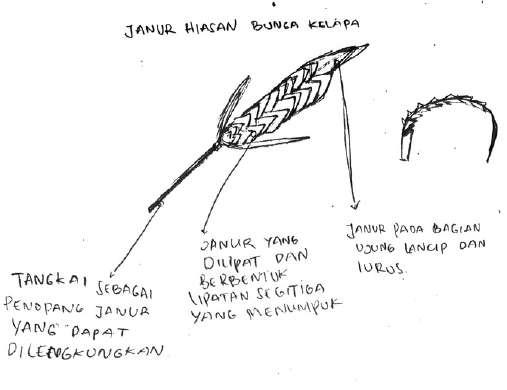 JANUR HIASAN BUNGA KELAPA
TANGKAI SEBAGAI
PENOPANG JANUR
YANG DAPAT
DILENGKUNGKAN
JANUR YANG
DILIPAT DAN
BERBENTUK
LIPATAN SEGITIGA
YANG MENUMPUK
JANUR PADA BAGIAN
UJUNG LANCIP DAN
LURUS.